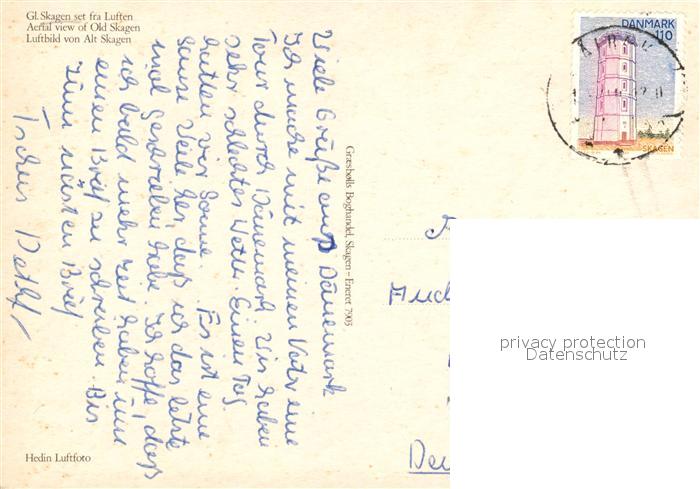 Gl. Skagen set fra Luften
Aerial view of Old Skagen
Luftbild von Alt Skagen
DANMARK
110
SKAGEN
Viele Grüße aus Dänemark
Ich mache mit meinen Vater eine
Tour durch Dänemark. Wir haben
sehr schlechtes Wetter. Einen Tag
hatten wir Sonne. Es ist eine
ganze Weile her, daß ich das letzte
mal geschrieben habe. Ich hoffe, daß
ich bald mehr Zeit haben um
einen Brief zu schreiben. Bis
zum nächsten Brief
Tschüs Detlef
Græsholls Boghandel, Skagen – Eneret 7903
privacy protection
Datenschutz
Hedin Luftfoto